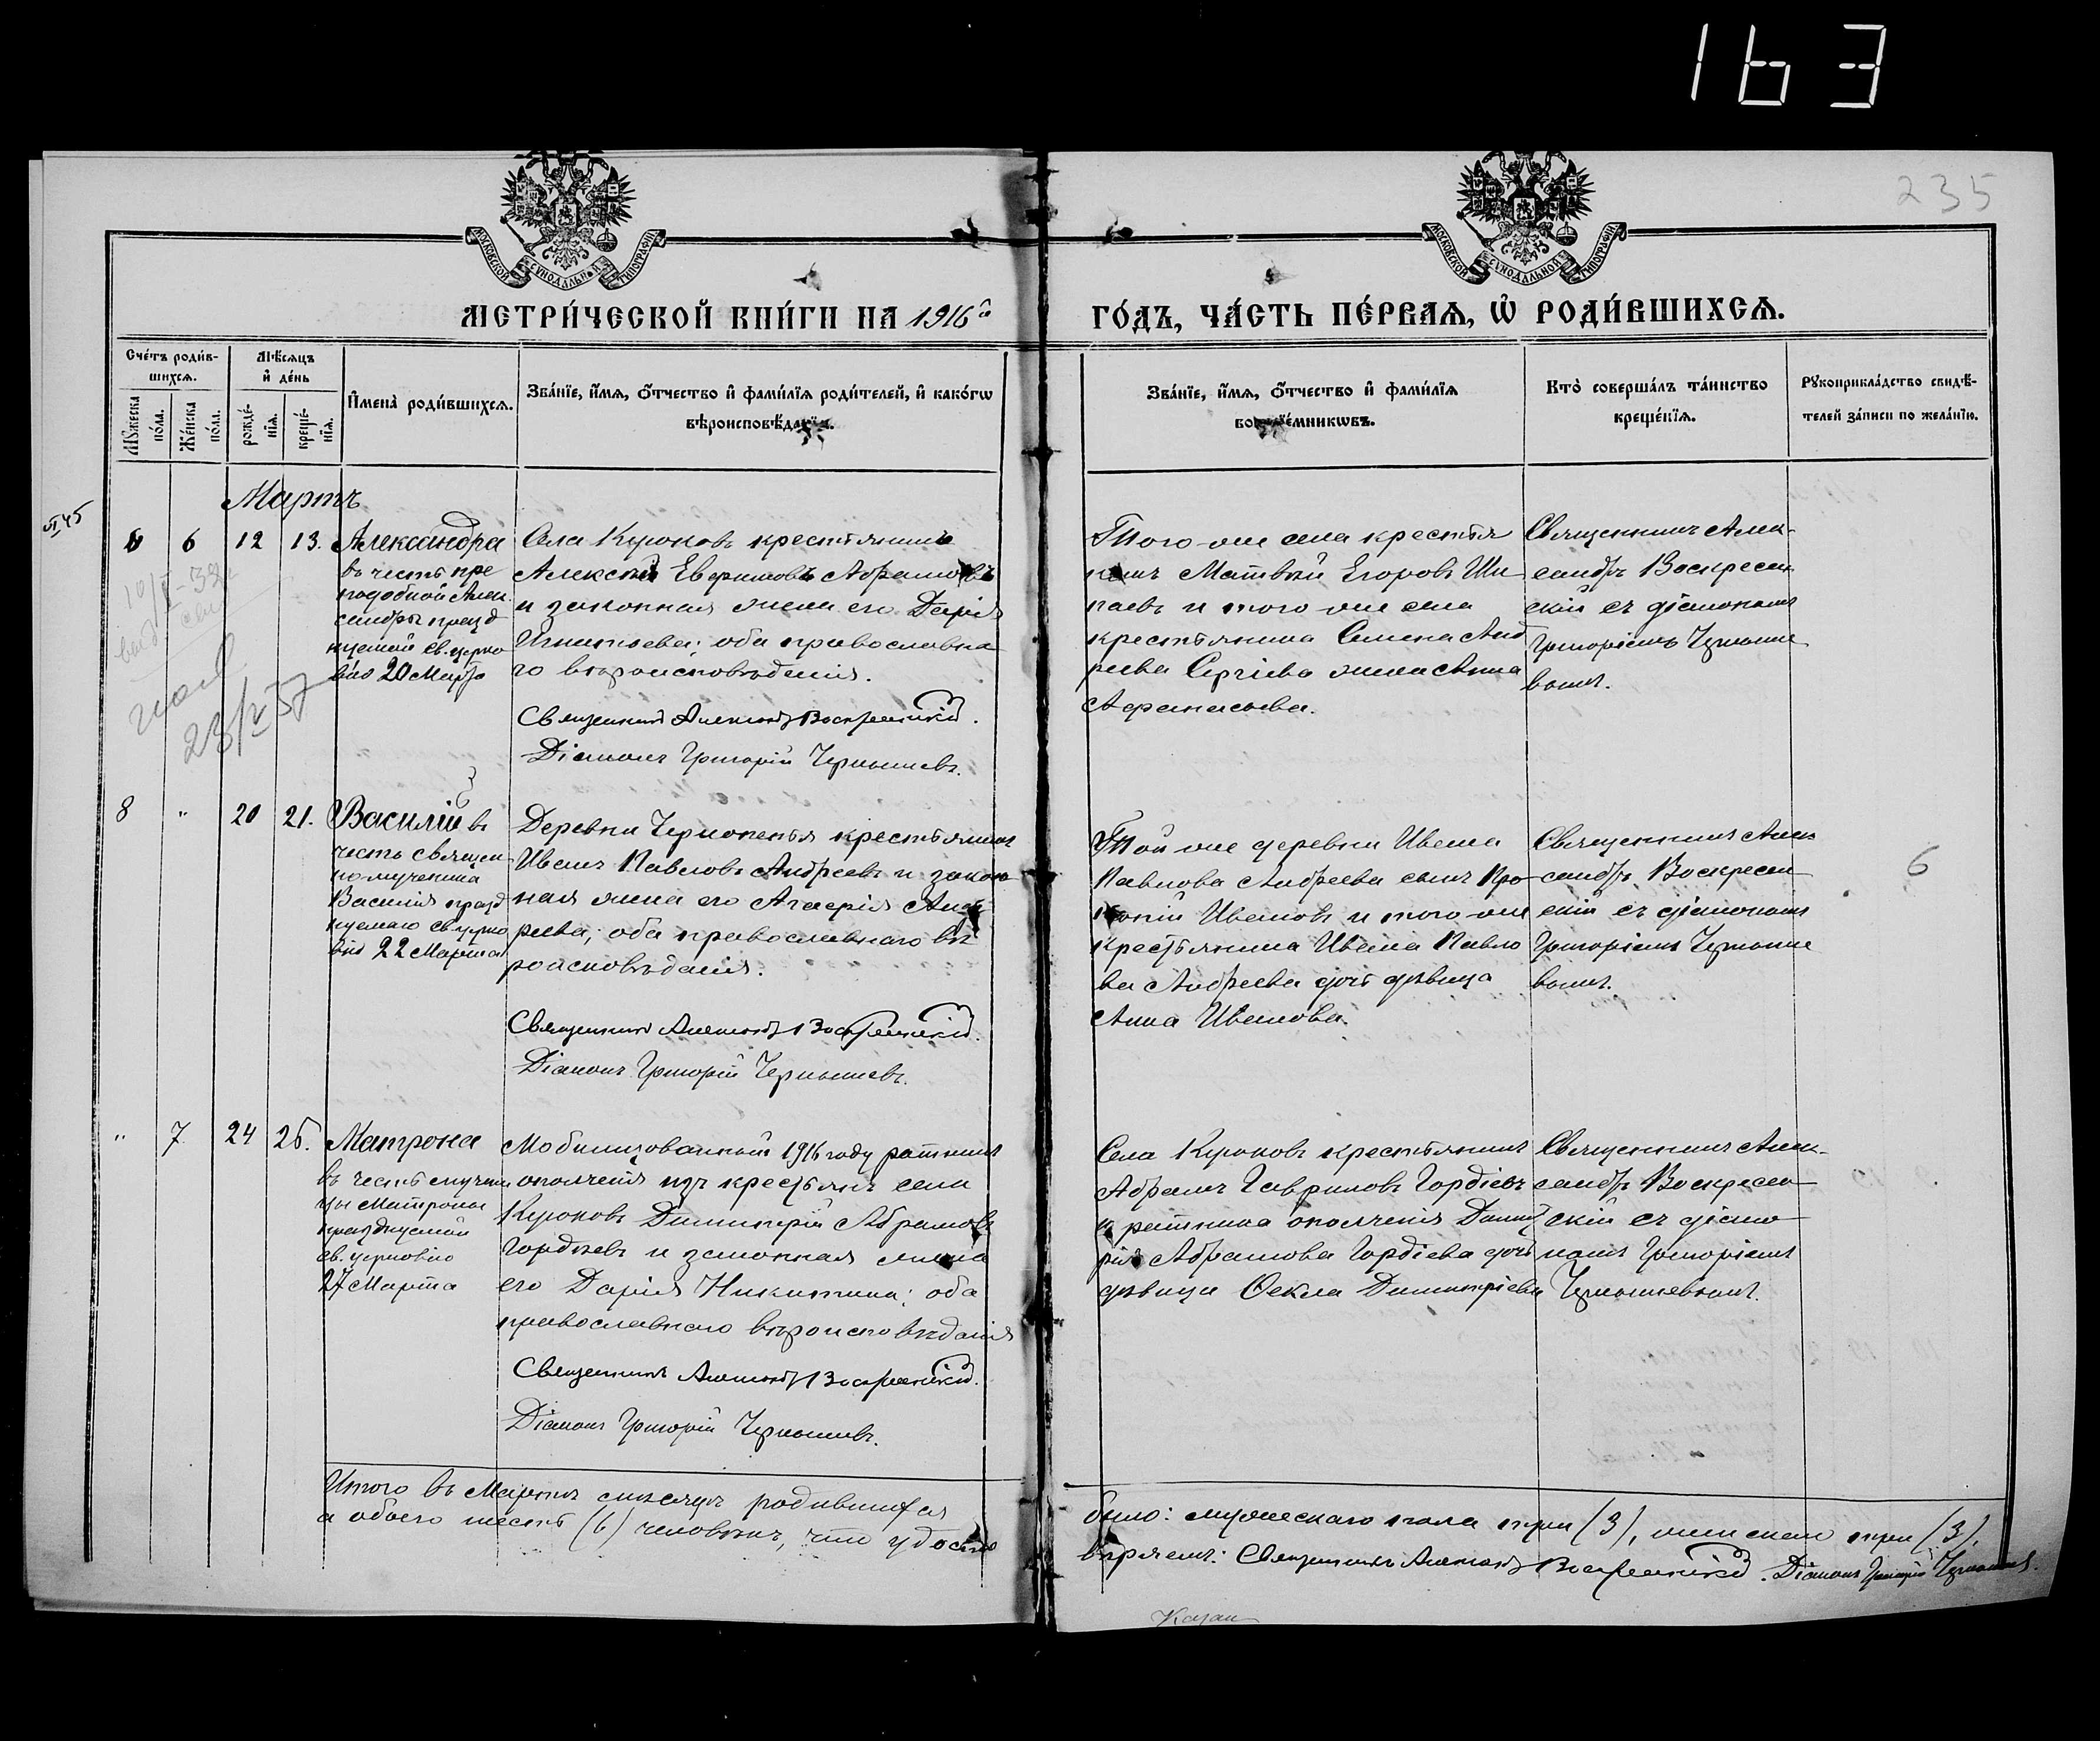 163
235
МОСКОВСКОЙ СѴНОДАЛЬНОЙ ТИПОГРАФІИ
МОСКОВСКОЙ СѴНОДАЛЬНОЙ ТИПОГРАФІИ
МЕТРИ́ЧЕСКОЙ КНИ́ГИ НА 1916й
ГО́ДЪ, ЧА́СТЬ ПЕ́РВАѦ, Ѡ҆ РОДИ́ВШИХСѦ.
Сче́тъ роди́в-
шихсѧ.
Мѣ́сѧцъ
и҆ де́нь
Мꙋ́жеска
по́ла.
Же́нска
по́ла.
рожде́-
нїѧ.
креще́-
нїѧ.
И҆мена̀ роди́вшихсѧ.
Зва́нїе, и҆́мѧ, ѻ҆́тчество и҆ фами́лїѧ роди́телей, и҆ како́гѡ
вѣроисповѣ́данїѧ.
Зва́нїе, и҆́мѧ, ѻ҆́тчество и҆ фами́лїѧ
воспрїе́мникѡвъ.
Кто̀ соверша́лъ та́инство
креще́нїѧ.
Рꙋкоприкла́дство свидѣ́-
телей за́писи по жела́нїю.
Мартъ
6 12 13. Александра
въ честь пре
подобной Алек
сандры празд
нуемой св. церко
вію 20 Марта
Села Кускокъ крестьянинъ
Алексѣй Евфимовъ Абрамовъ
и законная жена его Дарія
Игнатьева; оба православна
го вѣроисповѣданія.
Священникъ Александръ Воскресенскій.
Діаконъ Григорій Чернышевъ.
Того-же села крестья
нинъ Матвѣй Егоровъ Ши
паевъ и того-же села
крестьянина Семена Анд
реева Сергіева жена Анна
Афанасьева.
Священникъ Алек-
сандръ Воскресен
скій съ діакономъ
Григоріемъ Черныше
вымъ.
8 " 20 21. Василій въ
честь священ-
номученика
Василія празд
нуемаго св. церко
вію 22 Марта
Деревни крестьянинъ
Иванъ Павловъ Андреевъ и закон
ная жена его Агафія Анд
реева; оба православнаго вѣ
роисповѣданія.
Священникъ Александръ Воскресенскій.
Діаконъ Григорій Чернышевъ.
Той же деревни Ивана
Павлова Андреева сынъ Про
копій Ивановъ и того-же
крестьянина Ивана Павло
ва Андреева дочь дѣвица
Анна Иванова.
Священникъ Алек
сандръ Воскресен
скій съ діакономъ
Григоріемъ Черныше
вымъ.
6
" 7 24 25. Матрона
въ честь мучени
цы Матроны
празднуемой
св. церковію
27 Марта
Мобилизованный 1916 году ратникъ
ополченія изъ крестьянъ села
Димитрій Абрамовъ
Гордѣевъ и законная жена
его Дарія Никитина; оба
православнаго вѣроисповѣданія
Священникъ Александръ Воскресенскій.
Діаконъ Григорій Чернышевъ.
Села крестьянинъ
Абрамъ Гавриловъ Гордіевъ
и ратника ополченія Димит
рія Абрамова Гордіева дочь
дѣвица Ѳекла Димитріева
Священникъ Алек-
сандръ Воскресен
скій съ діако
номъ Григоріемъ
Чернышевымъ.
Итого въ Мартѣ мѣсяцѣ родившихся
обоего шесть (6) человѣкъ, что удосто
было: мужескаго пола три (3), женскаго три (3),
вѣряемъ: Священникъ Александръ Воскресенскій. Діаконъ Григорій Чернышевъ.